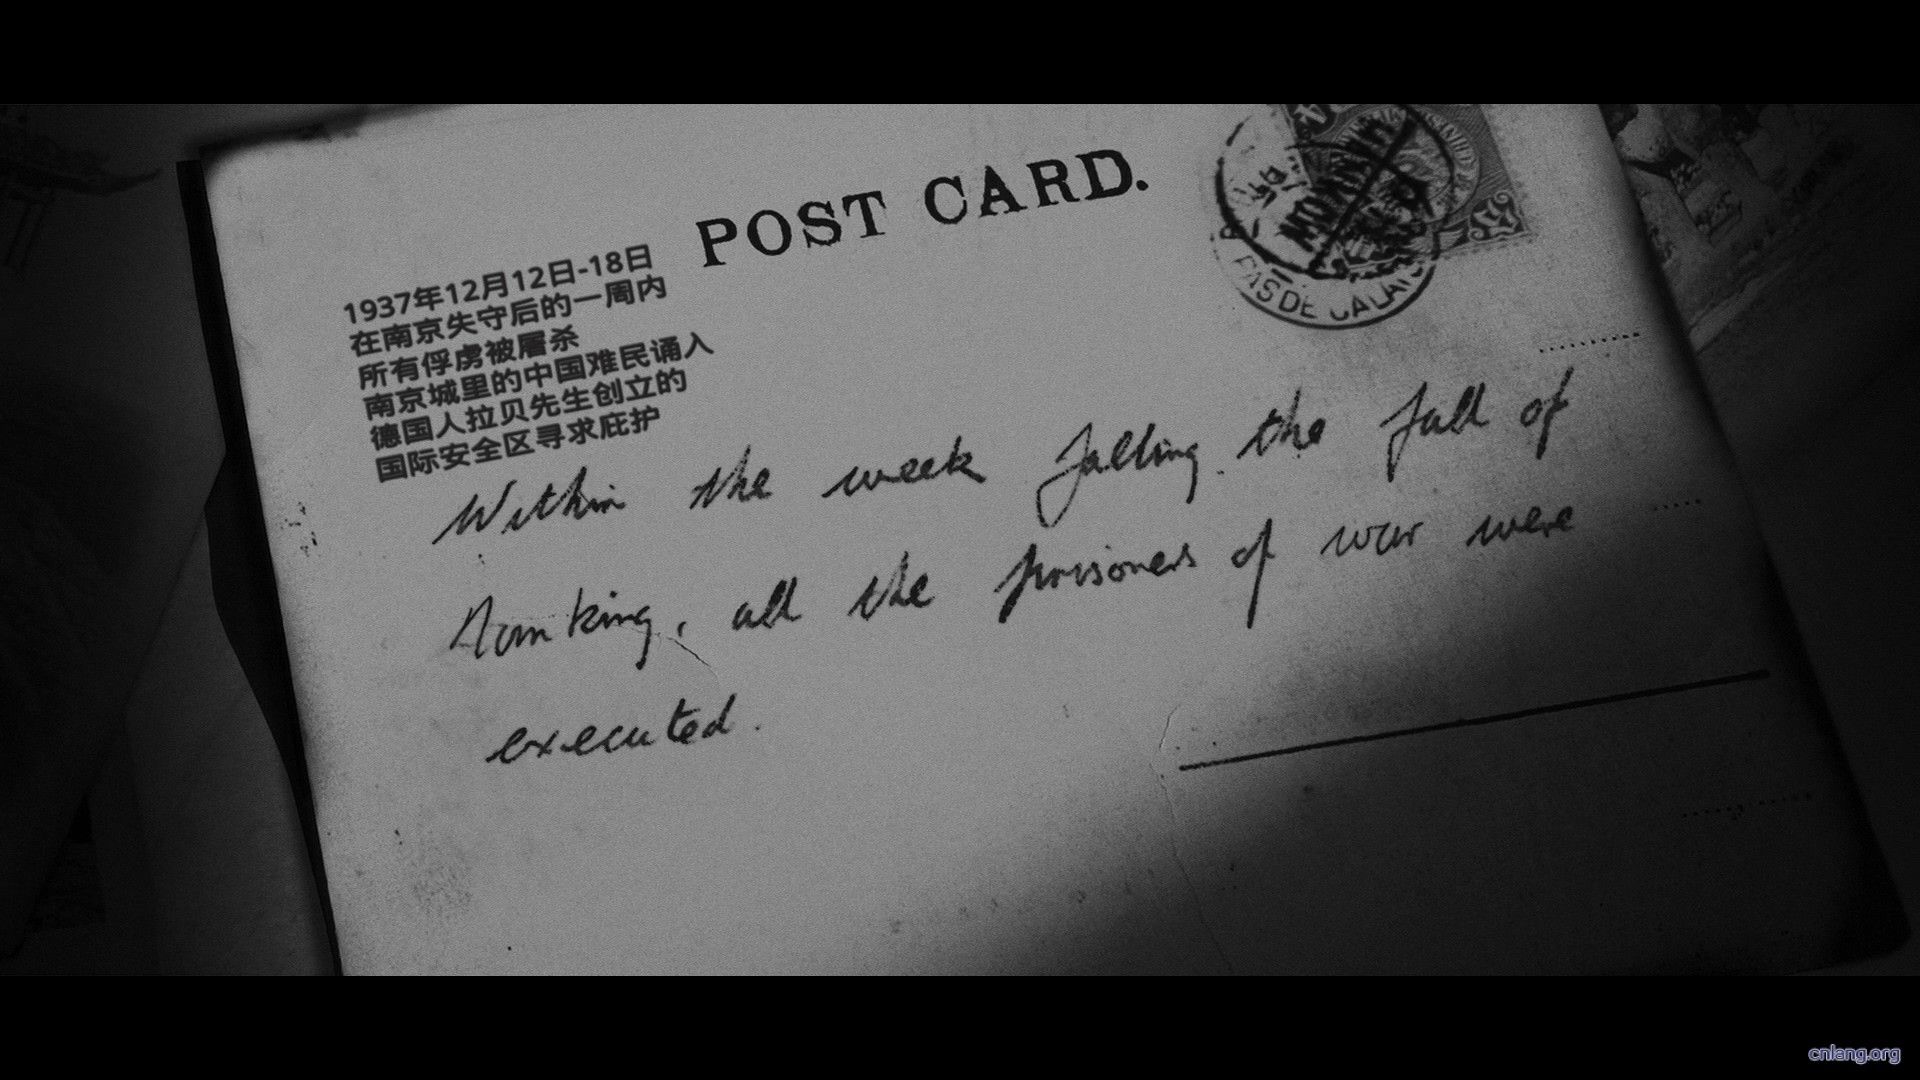 POST CARD.
1937年12月12日-18日
在南京失守后的一周内
所有俘虏被屠杀
南京城里的中国难民诵入
德国人拉贝先生创立的
国际安全区寻求庇护
PAS DE CALAIS
Within the week falling the fall of
Nanking, all the prisoners of war were
executed.
cnlang.org